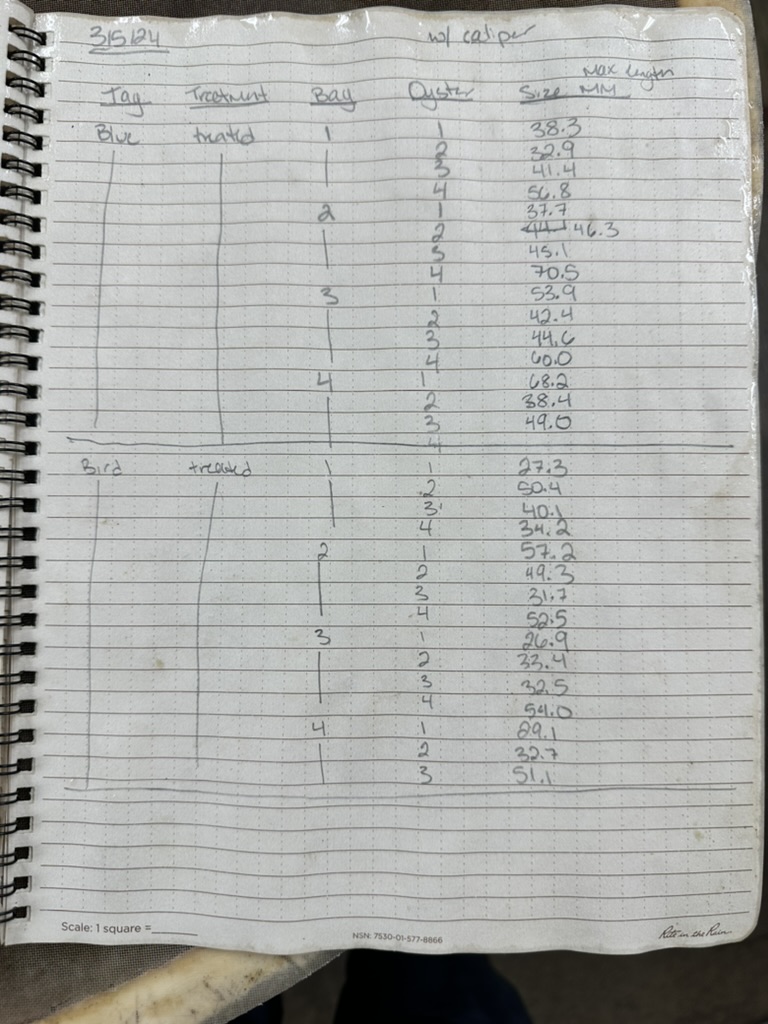 3/5/24 w/ caliper
Max length
Tag Treatment Bag Oyster Size MM
Blue treated 1 1 38.3
2 32.9
3 41.4
4 56.8
2 1 37.7
2 44.1 46.3
3 45.1
4 70.5
3 1 53.9
2 42.4
3 44.6
4 60.0
4 1 68.2
2 38.4
3 49.0
4
Bird treated 1 1 27.3
2 50.4
3 40.1
4 34.2
2 1 57.2
2 49.3
3 31.7
4 52.5
3 1 26.9
2 33.4
3 32.5
4 54.0
4 1 29.1
2 32.7
3 51.1
Scale: 1 square =______
NSN: 7530-01-577-8866
Rite in the Rain